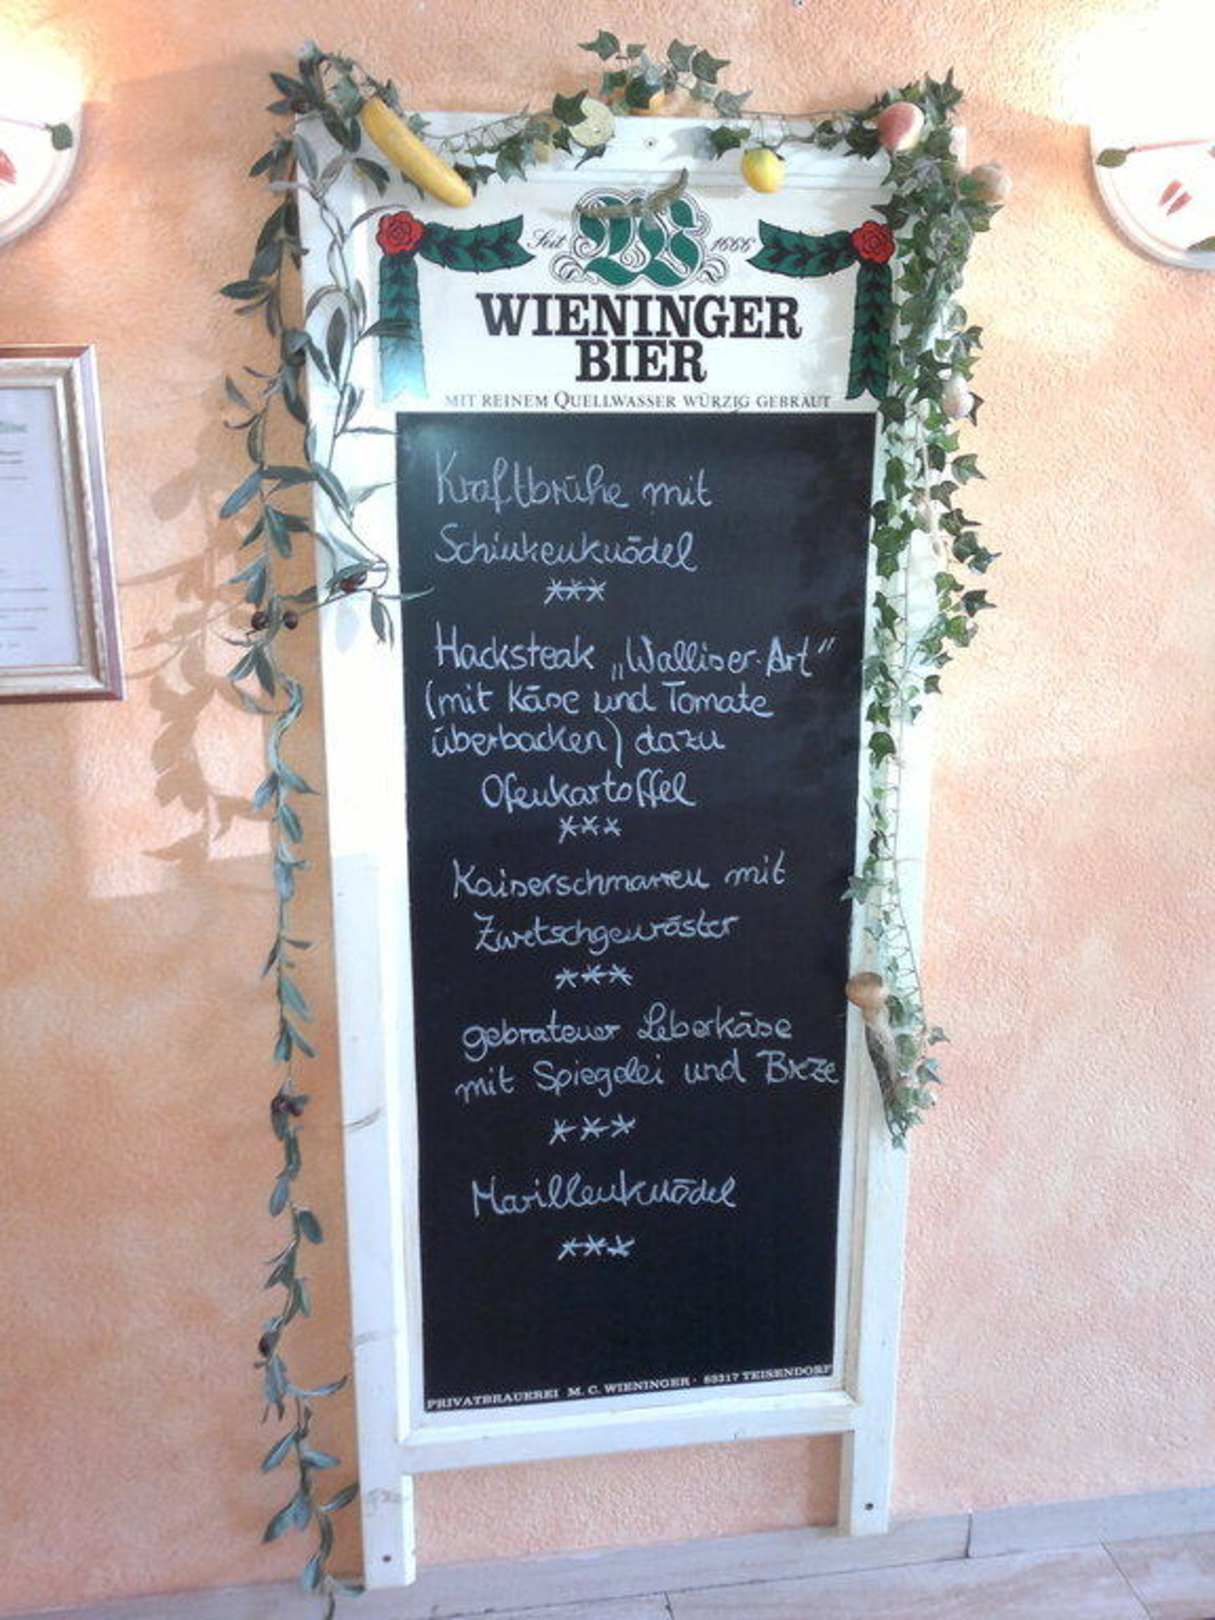 Seit WB 1666
WIENINGER
BIER
MIT REINEM QUELLWASSER WÜRZIG GEBRAUT
Kraftbrühe mit
Schinkenknödel
***
Hacksteak „Walliser Art"
(mit Käse und Tomate
überbacken) dazu
Ofenkartoffel
***
Kaiserschmarren mit
Zwetschgenröster
***
gebratener Leberkäse
mit Spiegelei und Breze
***
Marillenknödel
***
PRIVATBRAUEREI M. C. WIENINGER · 83317 TEISENDORF